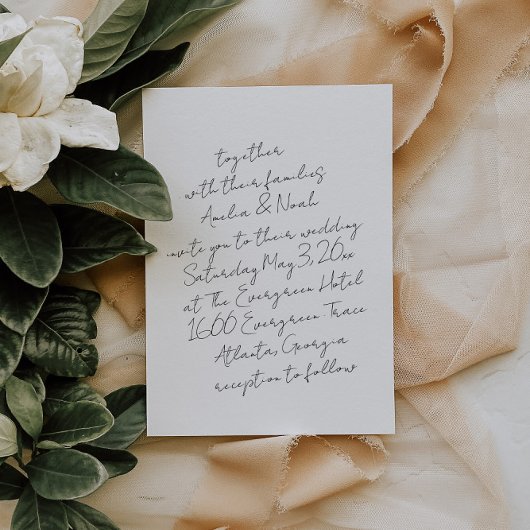 together
with their families
Amelia & Noah
invite you to their wedding
Saturday May 3, 20xx
at The Evergreen Hotel
1666 Evergreen Trace
Atlanta, Georgia
reception to follow